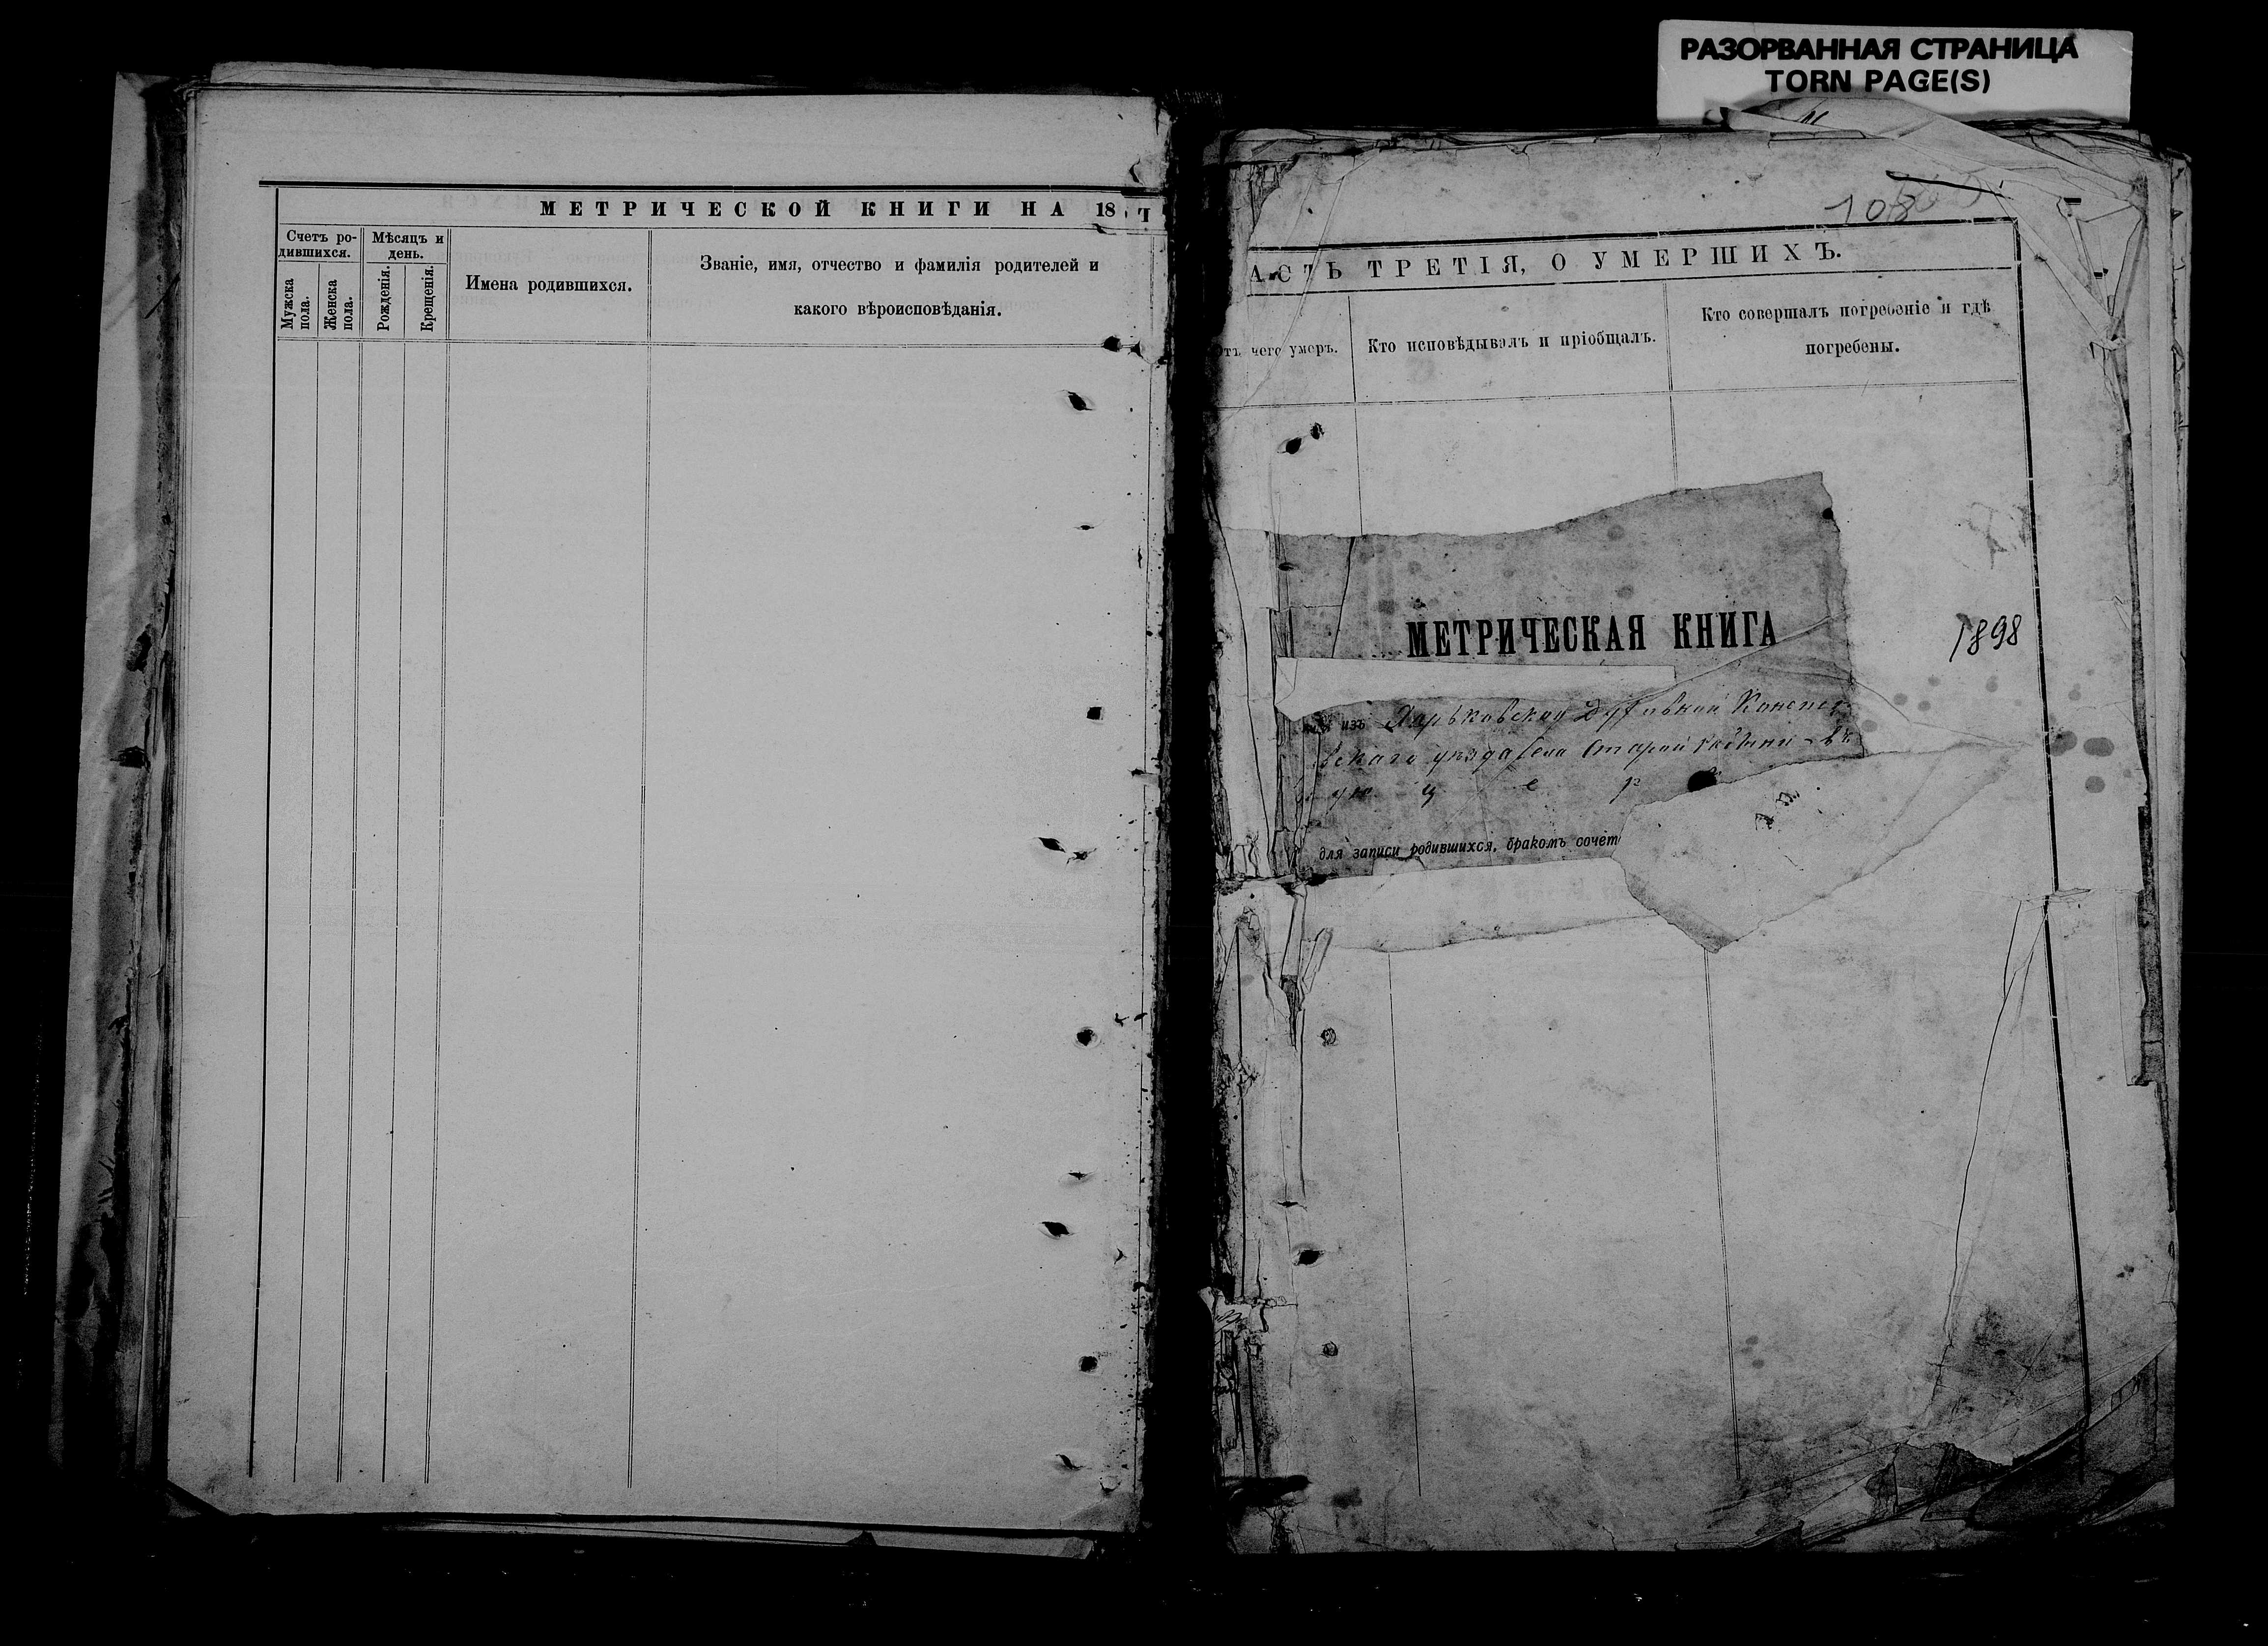 РАЗОРВАННАЯ СТРАНИЦА
TORN PAGE(S)
МЕТРИЧЕСКОЙ КНИГИ НА 18
Счетъ ро-
дившихся.
Мужска
пола.
Женска
пола.
Мѣсяцъ и
день.
Рожденія.
Крещенія.
Имена родившихся.
Званіе, имя, отчество и фамилія родителей и
какого вѣроисповѣданія.
108
АСТЬ ТРЕТІЯ, О УМЕРШИХЪ.
Отъ чего умеръ.
Кто исповѣдывалъ и пріобщалъ.
Кто совершалъ погребеніе и гдѣ
погребены.
МЕТРИЧЕСКАЯ КНИГА
1898
изъ Харьковской Духовной Консист
вскаго уѣзда села Старой
для записи родившихся, бракомъ сочет